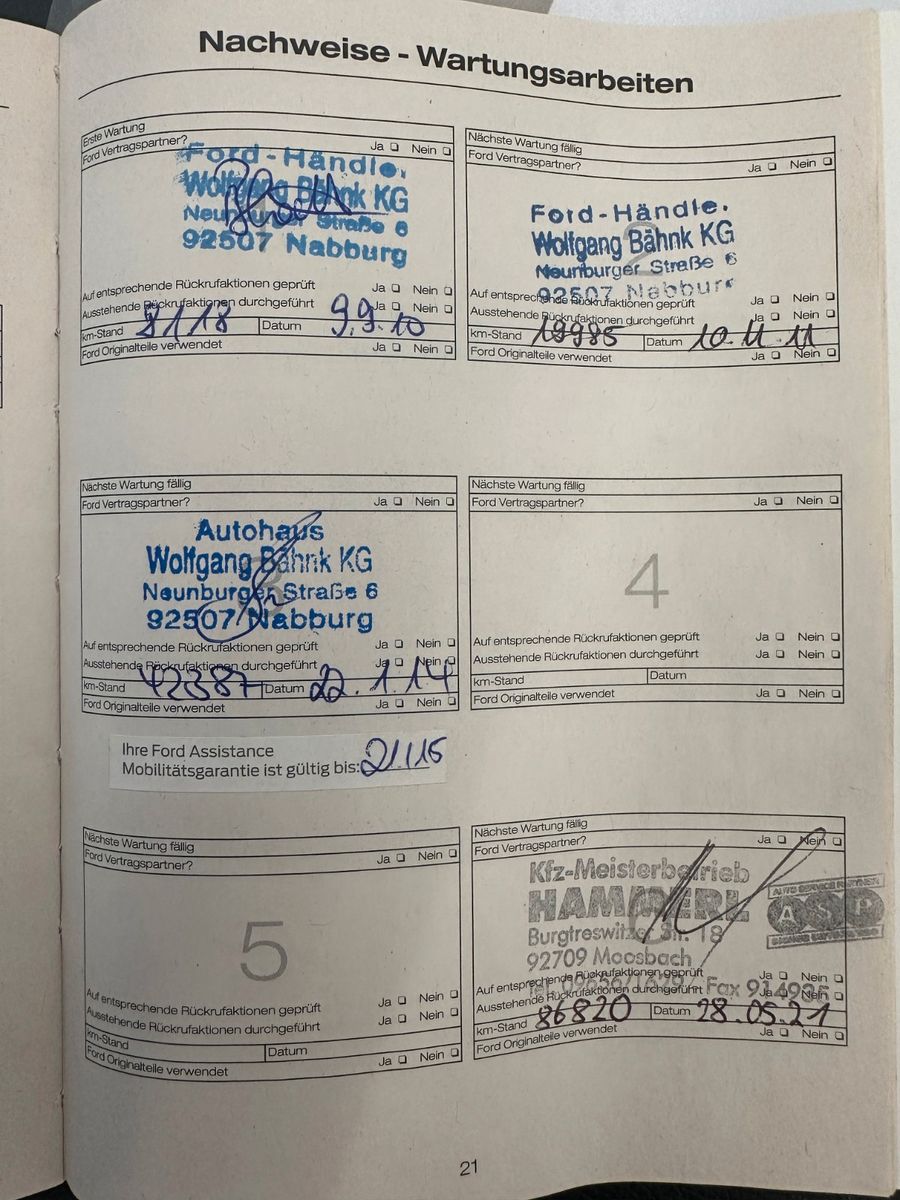 Nachweise - Wartungsarbeiten
Erste Wartung
Ford Vertragspartner? Ja ❑ Nein ❑
Ford-Händle.
Wolfgang Bähnk KG
Neunburger Straße 6
92507 Nabburg
Auf entsprechende Rückrufaktionen geprüft Ja ❑ Nein ❑
Ausstehende Rückrufaktionen durchgeführt Ja ❑ Nein ❑
km-Stand 8118 Datum 9.9.10
Ford Originalteile verwendet Ja ❑ Nein ❑
Nächste Wartung fällig
Ford Vertragspartner? Ja ❑ Nein ❑
2
Ford-Händle.
Wolfgang Bähnk KG
Neunburger Straße 6
92507 Nabburg
Auf entsprechende Rückrufaktionen geprüft Ja ❑ Nein ❑
Ausstehende Rückrufaktionen durchgeführt Ja ❑ Nein ❑
km-Stand 19985 Datum 10.11.11
Ford Originalteile verwendet Ja ❑ Nein ❑
Nächste Wartung fällig
Ford Vertragspartner? Ja ❑ Nein ❑
3
Autohaus
Wolfgang Bähnk KG
Neunburger Straße 6
92507 Nabburg
Auf entsprechende Rückrufaktionen geprüft Ja ❑ Nein ❑
Ausstehende Rückrufaktionen durchgeführt Ja ❑ Nein ❑
km-Stand 42387 Datum 22.1.14
Ford Originalteile verwendet Ja ❑ Nein ❑
Ihre Ford Assistance
Mobilitätsgarantie ist gültig bis: 21.1.15
Nächste Wartung fällig
Ford Vertragspartner? Ja ❑ Nein ❑
4
Auf entsprechende Rückrufaktionen geprüft Ja ❑ Nein ❑
Ausstehende Rückrufaktionen durchgeführt Ja ❑ Nein ❑
km-Stand Datum
Ford Originalteile verwendet Ja ❑ Nein ❑
Nächste Wartung fällig
Ford Vertragspartner? Ja ❑ Nein ❑
5
Auf entsprechende Rückrufaktionen geprüft Ja ❑ Nein ❑
Ausstehende Rückrufaktionen durchgeführt Ja ❑ Nein ❑
km-Stand Datum
Ford Originalteile verwendet Ja ❑ Nein ❑
Nächste Wartung fällig
Ford Vertragspartner? Ja ❑ Nein ❑
Kfz-Meisterbetrieb
HAMMERL
Burgtreswitzer Str. 18
92709 Moosbach
Fax 914935
AUTO SERVICE PARTNER
ASP
Auf entsprechende Rückrufaktionen geprüft Ja ❑ Nein ❑
Ausstehende Rückrufaktionen durchgeführt Ja ❑ Nein ❑
km-Stand 86820 Datum 28.05.21
Ford Originalteile verwendet Ja ❑ Nein ❑
21